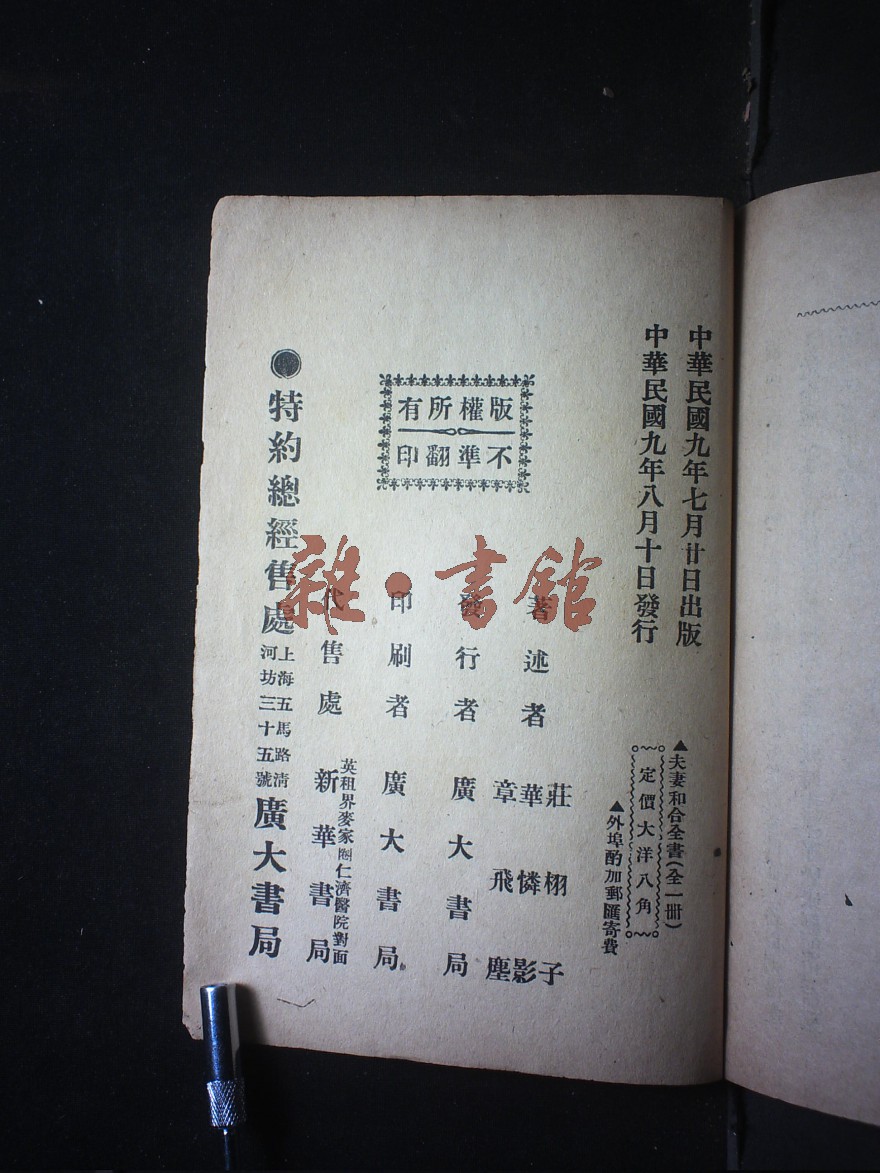 中華民國九年七月廿日出版
中華民國九年八月十日發行
▲夫妻和合全書(全一冊)
定價大洋八角
▲外埠酌加郵匯寄費
版權所有
不準翻印
著述者
莊栩子
華憐影
章飛塵
發行者 廣大書局
印刷者 廣大書局
代售處
英租界麥家圈仁濟醫院對面
新華書局
●特約總經售處
上海五馬路清
河坊三十五號
廣大書局
雜·書館